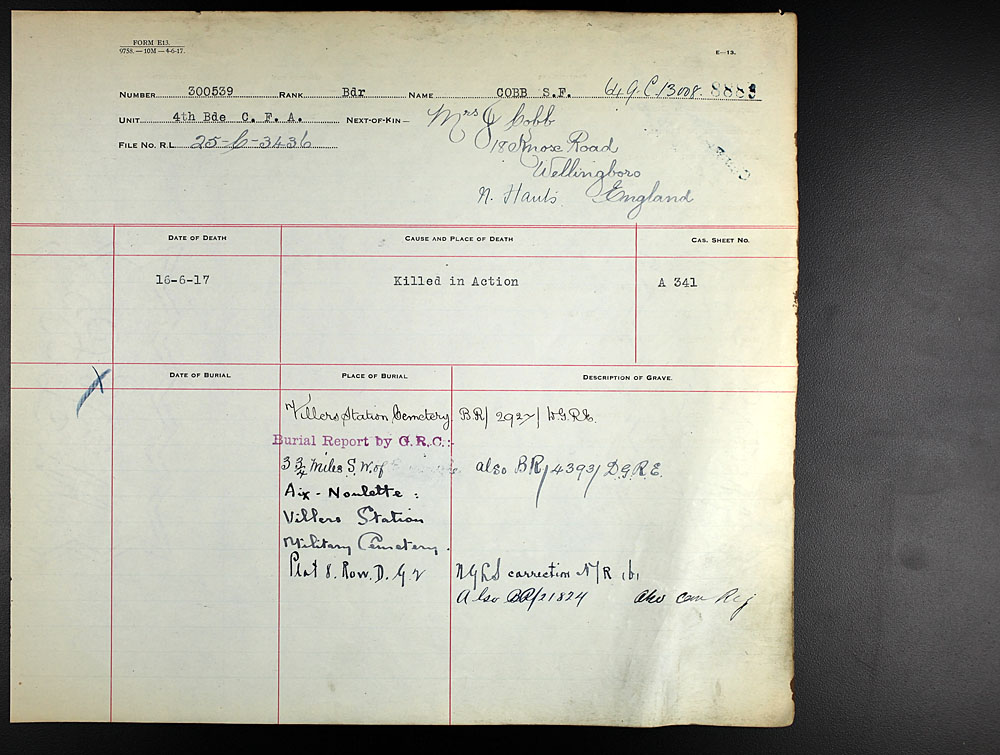 FORM E13.
9758.—10M—4-6-17.
E—13.
NUMBER 300539 RANK Bdr NAME COBB S.F. 649.C.13008. 8883
UNIT 4th Bde C. F. A. NEXT-OF-KIN— Mrs J Cobb
FILE NO. R.L. 25-C-3436 18 Knox Road
Wellingboro
N. Hants. England
DATE OF DEATH CAUSE AND PLACE OF DEATH CAS. SHEET NO.
16-6-17 Killed in Action A 341
DATE OF BURIAL PLACE OF BURIAL DESCRIPTION OF GRAVE.
Villers Station Cemetery BR/ 2927/ D.G.R.E.
Burial Report by G.R.C.:-
3 3/4 Miles S.W. of also BR/4393/ D.G.R.E.
Aix-Noulette :
Villers Station
Military Cemetery.
Plot 8. Row. D. G. 2 correction N/R 161
Also BR/21824 also Cem Reg